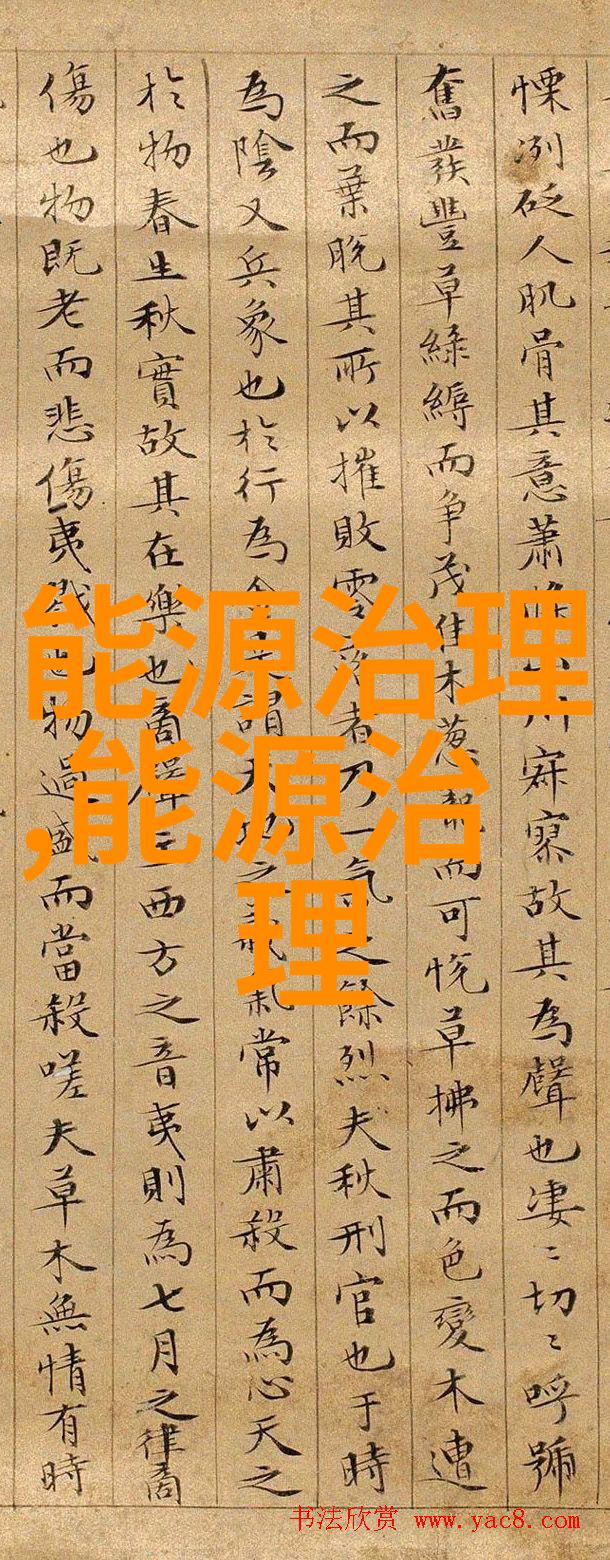 慄冽砭人肌骨其意蕭條山川寂寥故其為聲也凄〻切〻呼號
奮發豐草綠縟而争茂佳木葱蘢而可悅草拂之而色變木遭
之而葉脫其所以摧敗零落者乃一气之餘烈夫秋刑官也于時
為陰又兵象也於行為金是謂天地之義氣常以肅殺而為心天之
於物春生秋實故其在樂也商聲主西方之音夷則為七月之律商
傷也物既老而悲傷夷戮也物過盛而當殺嗟夫草木無情有時
能源治理
,能源治
理
书法欣赏 www.yac8.com